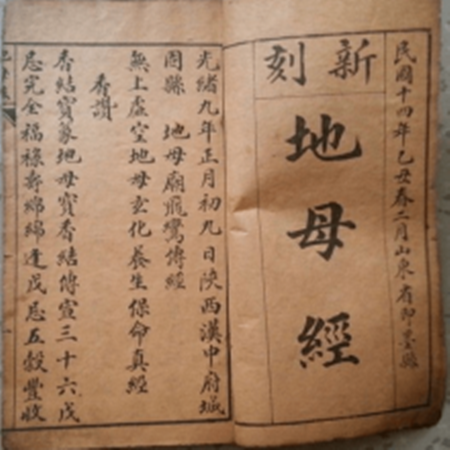 民國十四年乙丑春二月山東省即墨縣
新刻
地母經
光緒九年正月初九日陝西漢中府城
固縣 地母廟飛鸞傳經
無上虛空地母玄化養生保命真經
香讚
香結寶篆地母寶香結傳宣三十六戊
忌完全福祿壽綿綿逢戊忌五穀豐收